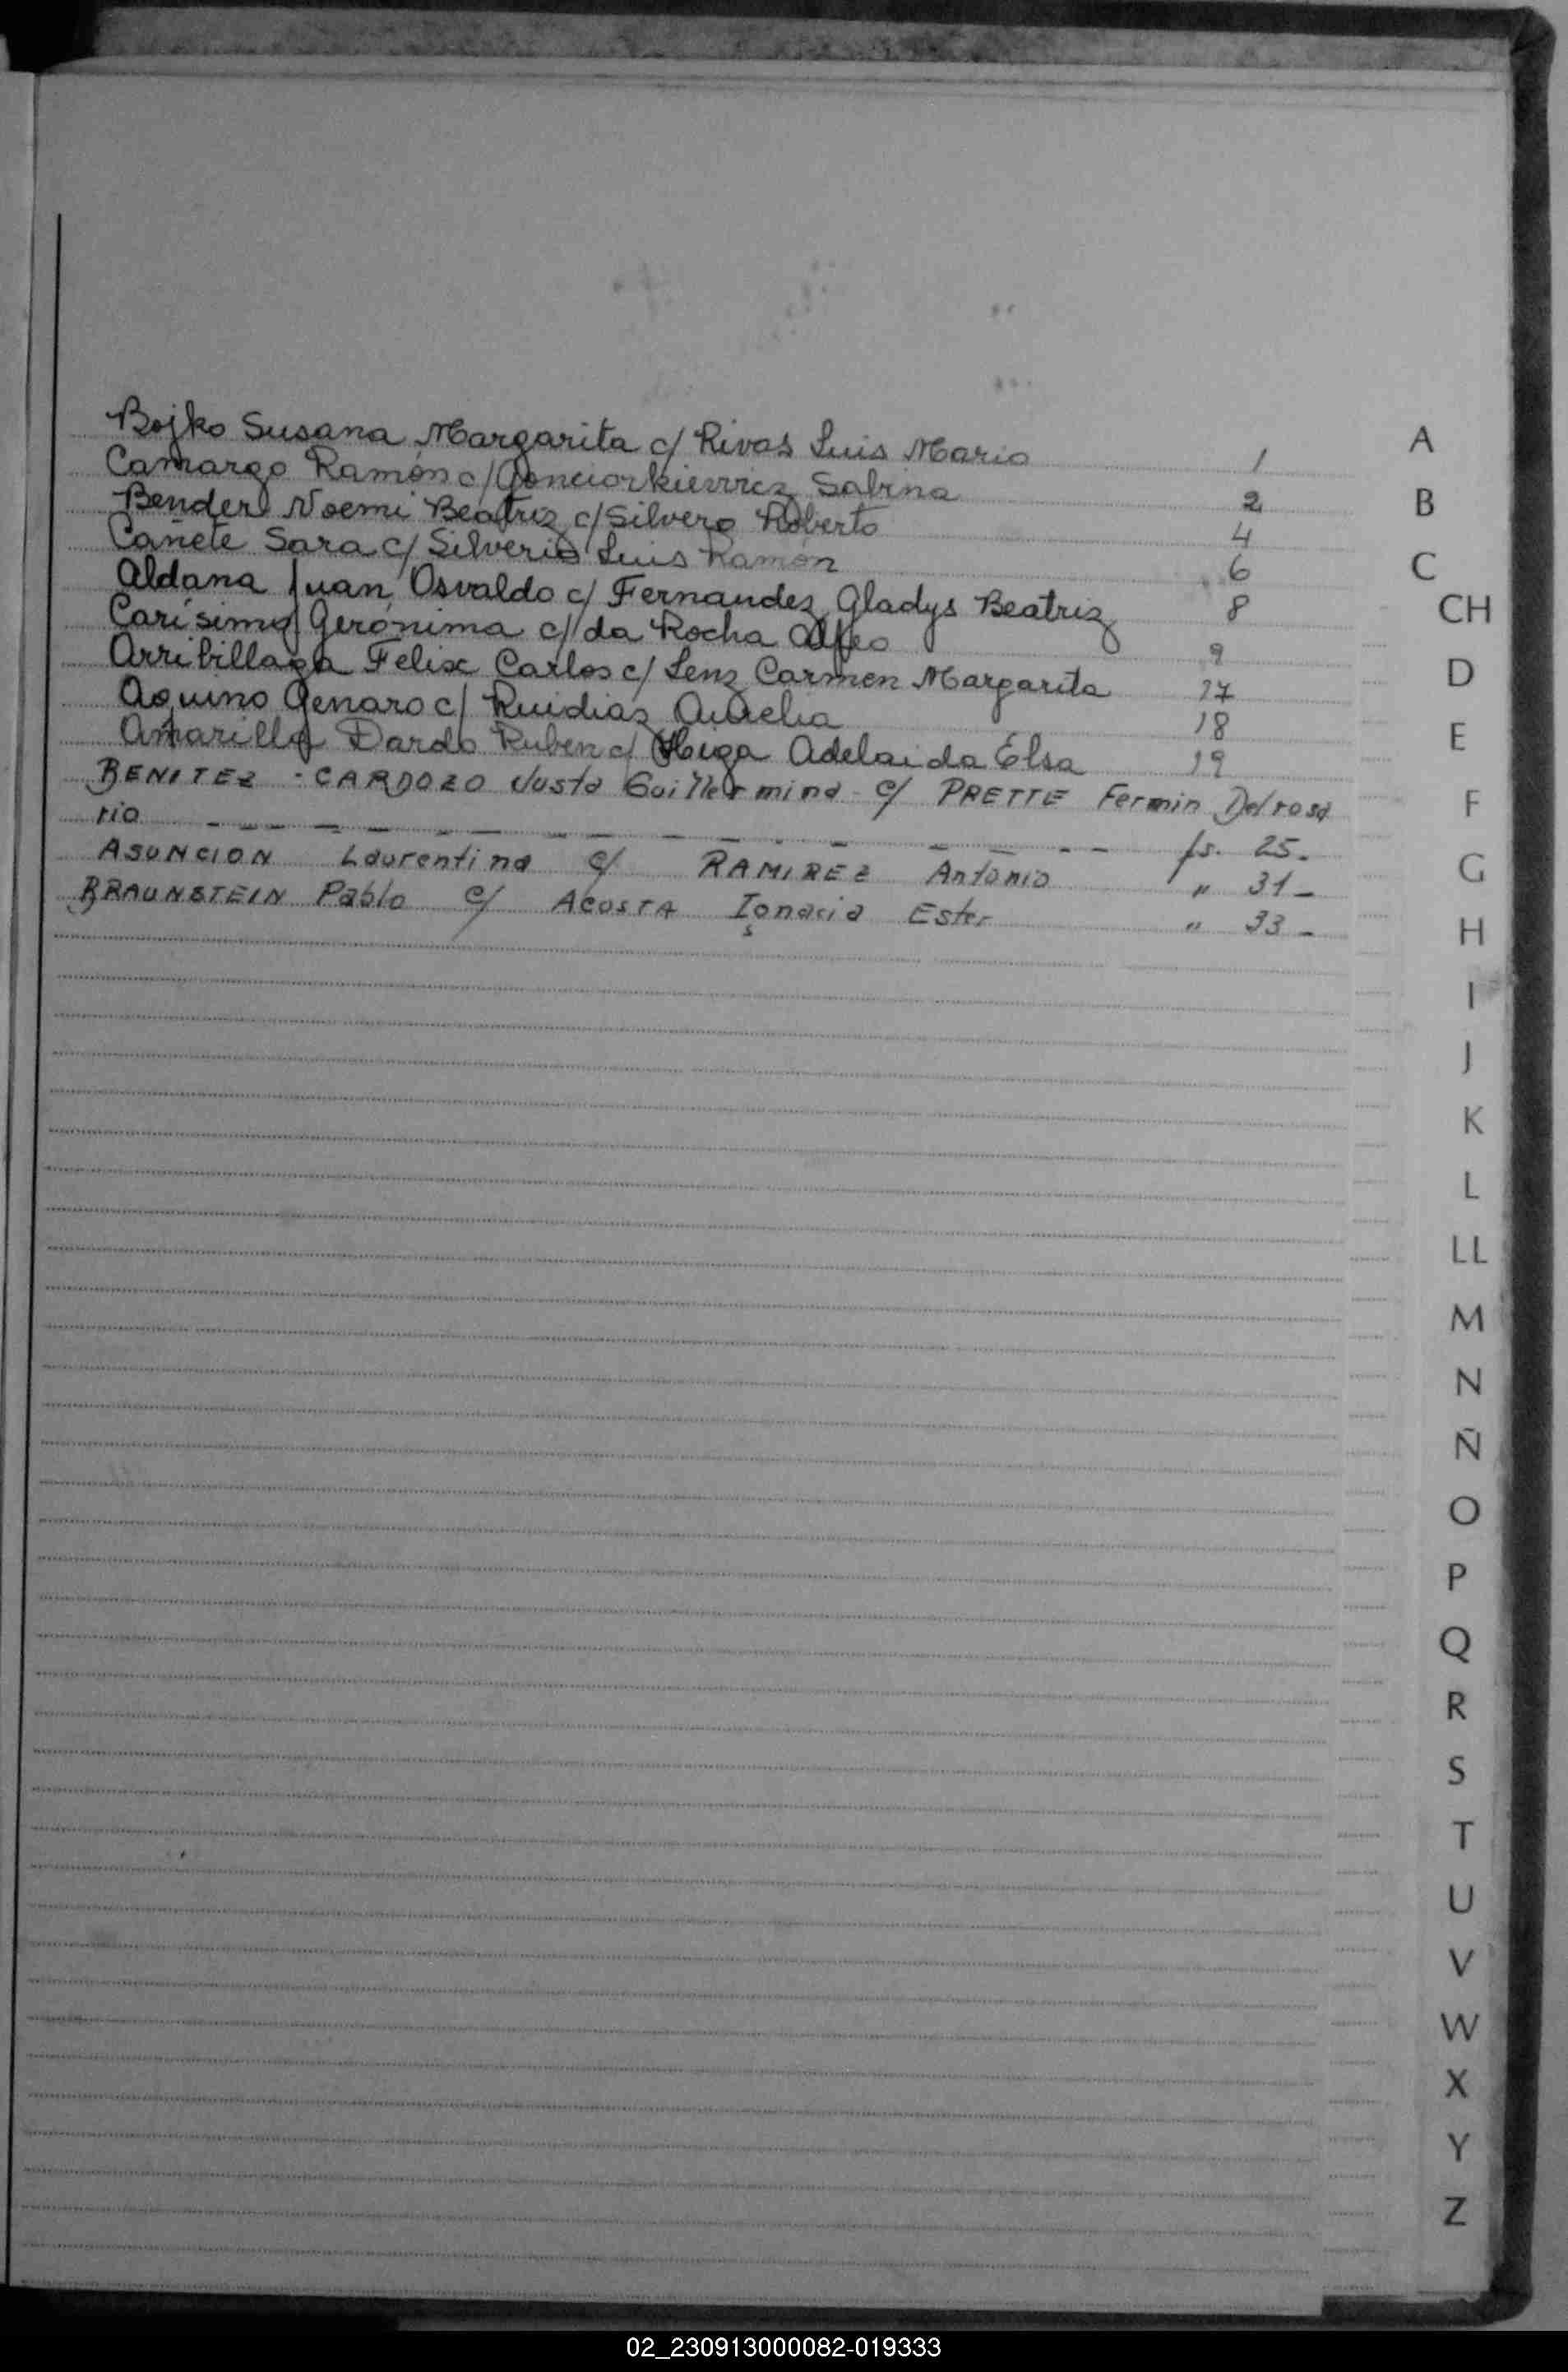 Bojko Susana Margarita c/ Rivas Luis Mario 1
Camargo Ramón c/ Gonciorkievricz Sabina 2
Bender Noemi Beatriz c/ Silvero Roberto 4
Cañete Sara c/ Silverio Luis Ramón 6
Aldana Juan Osvaldo c/ Fernandez Gladys Beatriz 8
Carísimo Gerónima c/ da Rocha Alfeo 9
Arribillaga Felix Carlos c/ Lenz Carmen Margarita 17
Aquino Genaro c/ Ruidiaz Aurelia 18
Amarilla Dardo Ruben c/ Higa Adelaida Elsa 19
BENITEZ - CARDOZO Justa Guillermina - c/ PRETTE Fermin Delrosa
rio fs. 25.
ASUNCION Laurentina c/ RAMIREZ Antonio " 31 -
BRAUNSTEIN Pablo c/ ACOSTA Ignacia Ester " 33 -
A
B
C
CH
D
E
F
G
H
I
J
K
L
LL
M
N
Ñ
O
P
Q
R
S
T
U
V
W
X
Y
Z
02_230913000082-019333